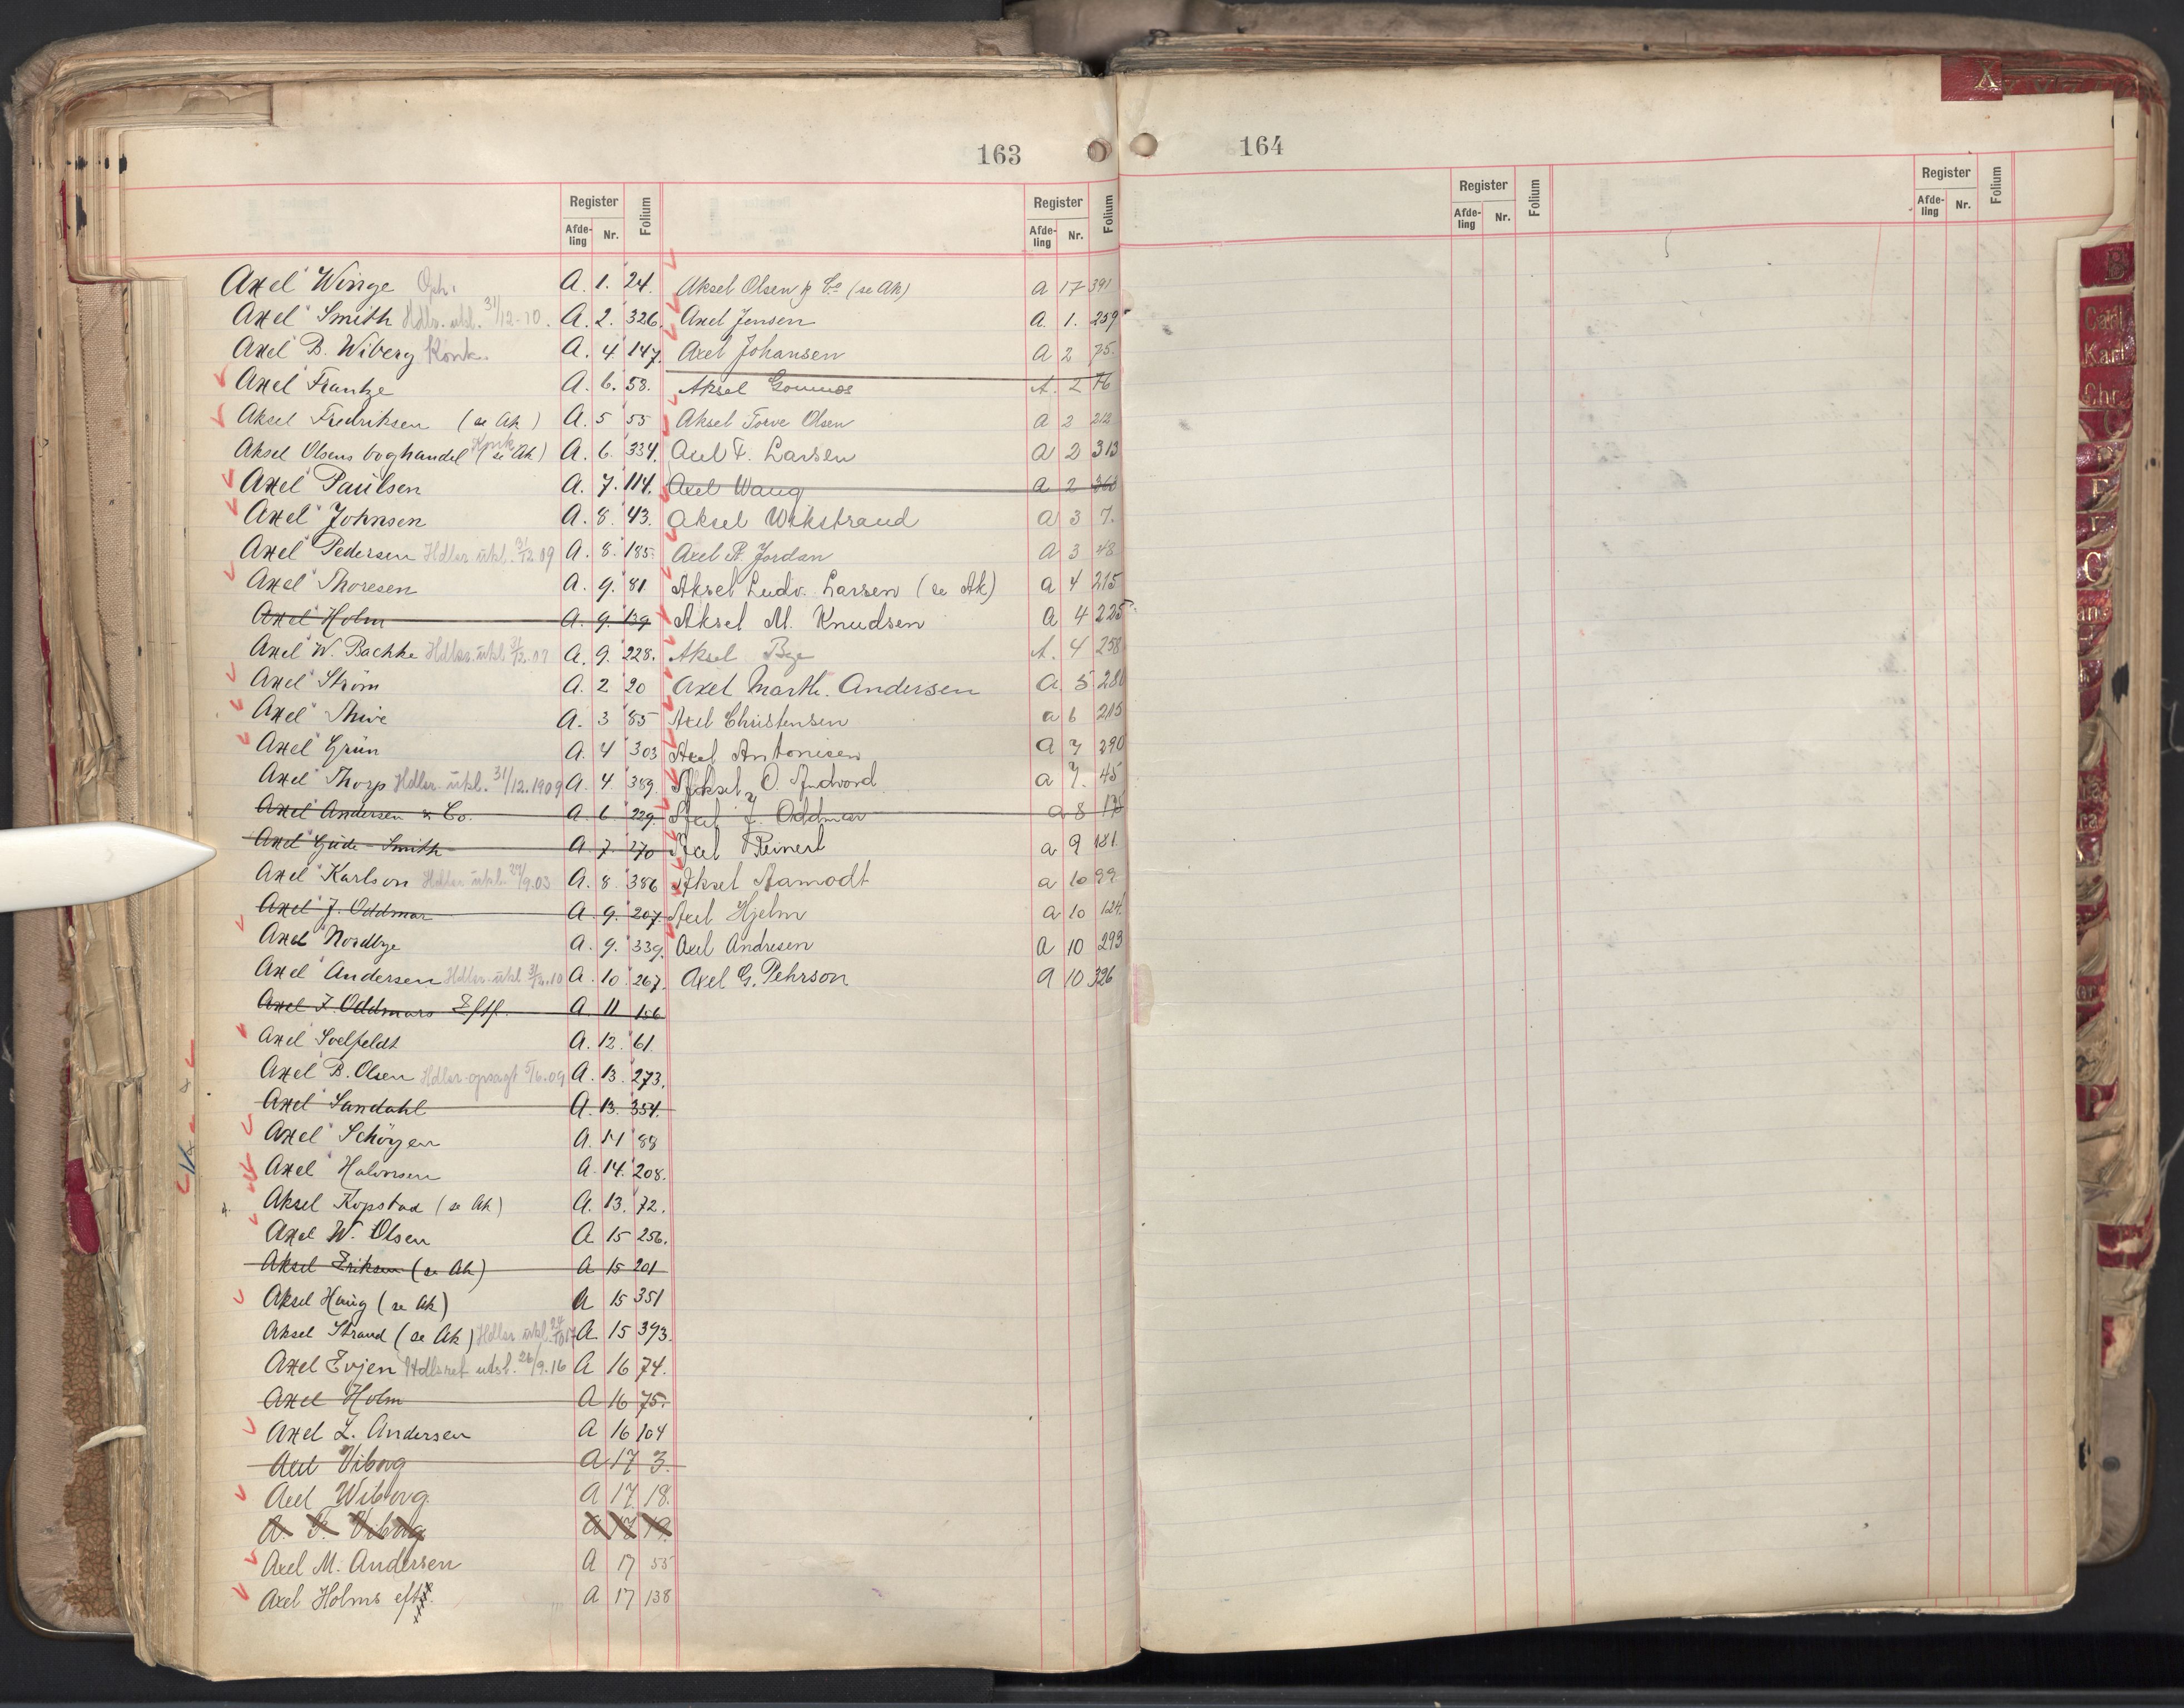 163
Register Folium Register Folium
Afde-ling Nr. Afde-ling Nr.
Axel Winge Oph. A. 1. 24.
Axel Smith Hdlr. utl. 31/12-10. A. 2. 326.
Axel B. Wiberg Konk. A. 4. 147.
Axel Frantze A. 6. 58.
Aksel Fredriksen (se Ak) A. 5 55
Aksel Olsens boghandel Konk. (se Ak) A. 6. 334.
Axel Paulsen A. 7. 114.
Axel Johnsen A. 8. 43.
Axel Pedersen Hdlsr. utl. 31/12.09 A. 8. 185.
Axel Thoresen A. 9. 81
Axel Holm A. 9. 139
Axel W. Bachke Hdlsr. utl. 31/12.07 A. 9. 228.
Axel Strøm A. 2 20
Axel Thive A. 3 85
Axel Grün A. 4 303
Axel Thorp Hdlsr. utl. 31/12.1909 A. 4. 389.
Axel Andersen & Co. A. 6 229.
Axel Gude-Smith A. 7. 270
Axel Karlson Hdlsr. utl. 24/9.03 A. 8. 386
Axel J. Oddmar A. 9. 207.
Axel Nordbye A. 9. 339.
Axel Andersen Hdlsr. utl. 31/12.10 A. 10. 267.
Axel J. Oddmars Eftf. A. 11 156
Axel Soelfeldt A. 12. 61.
Axel B. Olsen Hdlsr. opsagt 5/6.09 A. 13. 273.
Axel Sandahl A. 13. 354.
Axel Schöyen A. 14 88
Axel Halvorsen A. 14. 208.
Aksel Kopstad (se Ak) A. 13. 72.
Axel W. Olsen A 15 256.
Aksel Eriksen (se Ak) A 15 201
Aksel Haug (se Ak) A 15 351
Aksel Strand (se Ak) Hdlsr. utl. A. 15 393.
Axel Evjen Hdlsret utsl. 26/9.16 A 16 74.
Axel Holm A 16 75.
Axel L. Andersen A 16 104
Axel Viborg A 17 3.
Axel Wiborg A 17. 18.
A. Viborg A 17 19.
Axel M. Andersen A 17 55
Axel Holms eftf. A 17 138
Aksel Olsen & Co (se Ak) A 17 391
Axel Jensen A. 1. 259
Axel Johansen A 2 75.
Aksel A. 2 76
Aksel Torve Olsen A 2 212
Axel F. Larsen A 2 313
Axel Waug A 2 363
Aksel Wikstrand A 3 7.
Axel P. Jordan A 3 48
Aksel Ludv. Larsen (se Ak) A 4 215
Aksel M. Knudsen A 4 225
Aksel Bye A. 4 258
Axel Marth. Andersen A 5 280
Axel Christensen A 6 215
Axel Antonisen A 7 290
Aksel O. Andvord A 7. 45
Axel J. Oddmar A 8 175
Axel Reinert A 9 181
Aksel Aamodt A 10 99
Axel Hjelm A 10 124.
Axel Andresen A 10 293
Axel G. Pehrson A 10 326
164
Register Folium Register Folium
Afde-ling Nr. Afde-ling Nr.
X
B
Carl
Karl
Chr.
G
P